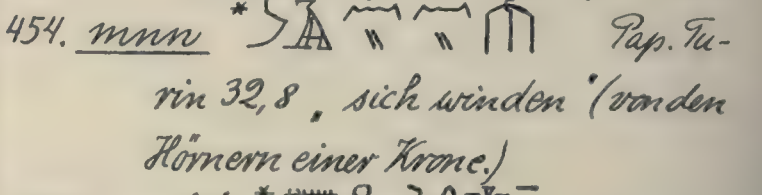 454. mnn * Pap. Tu-
rin 32,8 „ sich winden " (von den
Hörnern einer Krone.)